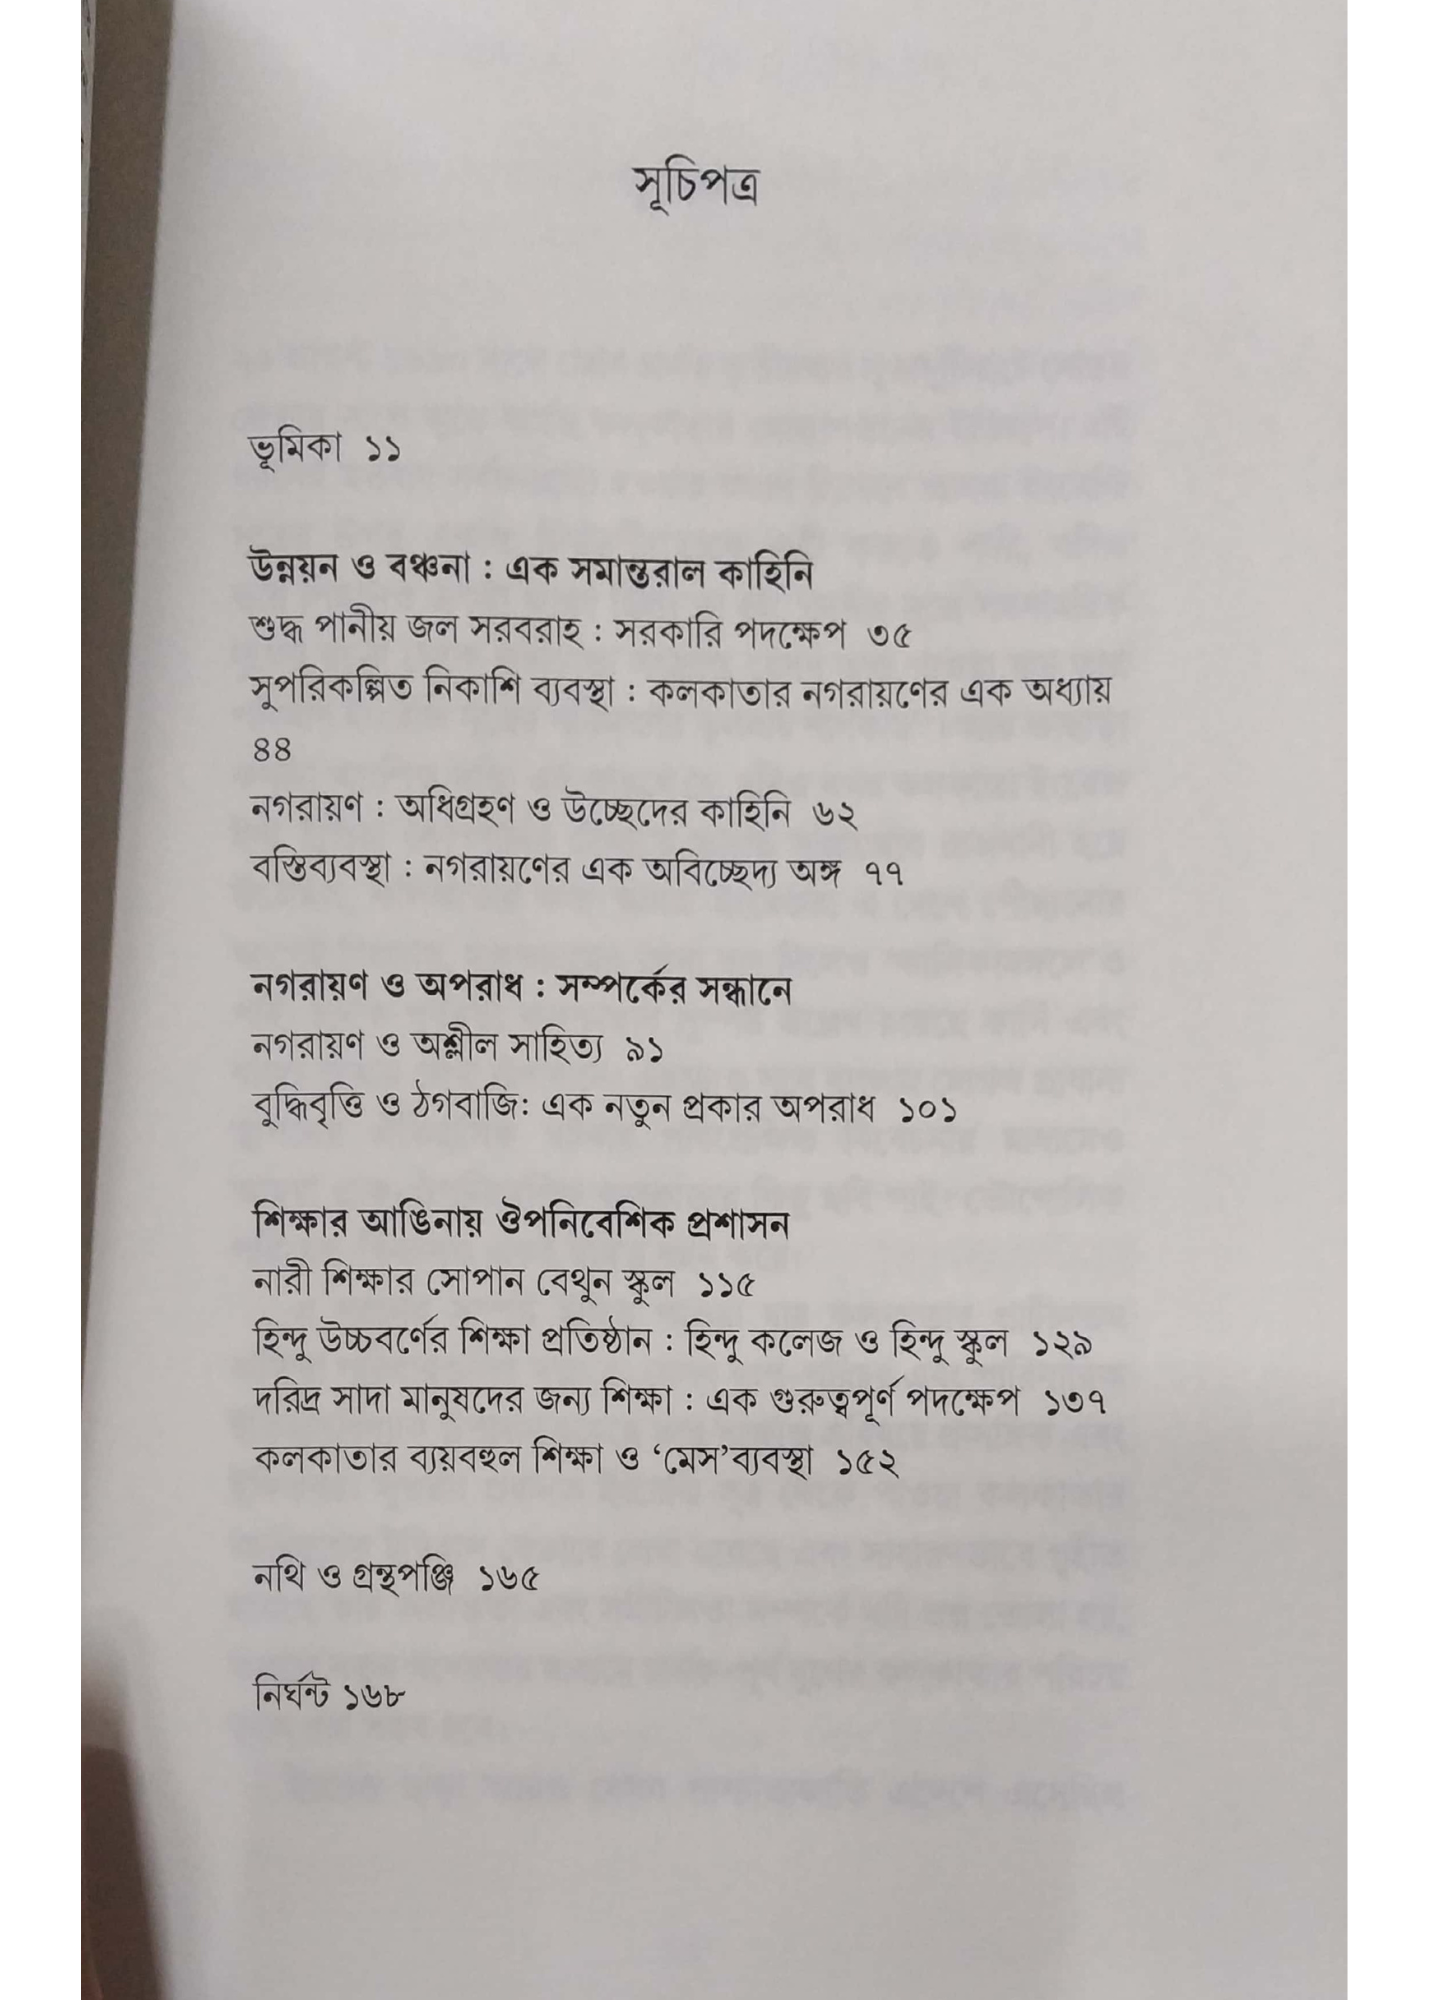 সূচিপত্র
ভূমিকা ১১
উন্নয়ন ও বঞ্চনা : এক সমান্তরাল কাহিনি
শুদ্ধ পানীয় জল সরবরাহ : সরকারি পদক্ষেপ ৩৫
সুপরিকল্পিত নিকাশি ব্যবস্থা : কলকাতার নগরায়ণের এক অধ্যায়
৪৪
নগরায়ণ : অধিগ্রহণ ও উচ্ছেদের কাহিনি ৬২
বস্তিব্যবস্থা : নগরায়ণের এক অবিচ্ছেদ্য অঙ্গ ৭৭
নগরায়ণ ও অপরাধ : সম্পর্কের সন্ধানে
নগরায়ণ ও অশ্লীল সাহিত্য ৯১
বুদ্ধিবৃত্তি ও ঠগবাজি: এক নতুন প্রকার অপরাধ ১০১
শিক্ষার আঙিনায় ঔপনিবেশিক প্রশাসন
নারী শিক্ষার সোপান বেথুন স্কুল ১১৫
হিন্দু উচ্চবর্ণের শিক্ষা প্রতিষ্ঠান : হিন্দু কলেজ ও হিন্দু স্কুল ১২৯
দরিদ্র সাদা মানুষদের জন্য শিক্ষা : এক গুরুত্বপূর্ণ পদক্ষেপ ১৩৭
কলকাতার ব্যয়বহুল শিক্ষা ও ‘মেস’ব্যবস্থা ১৫২
নথি ও গ্রন্থপঞ্জি ১৬৫
নির্ঘন্ট ১৬৮